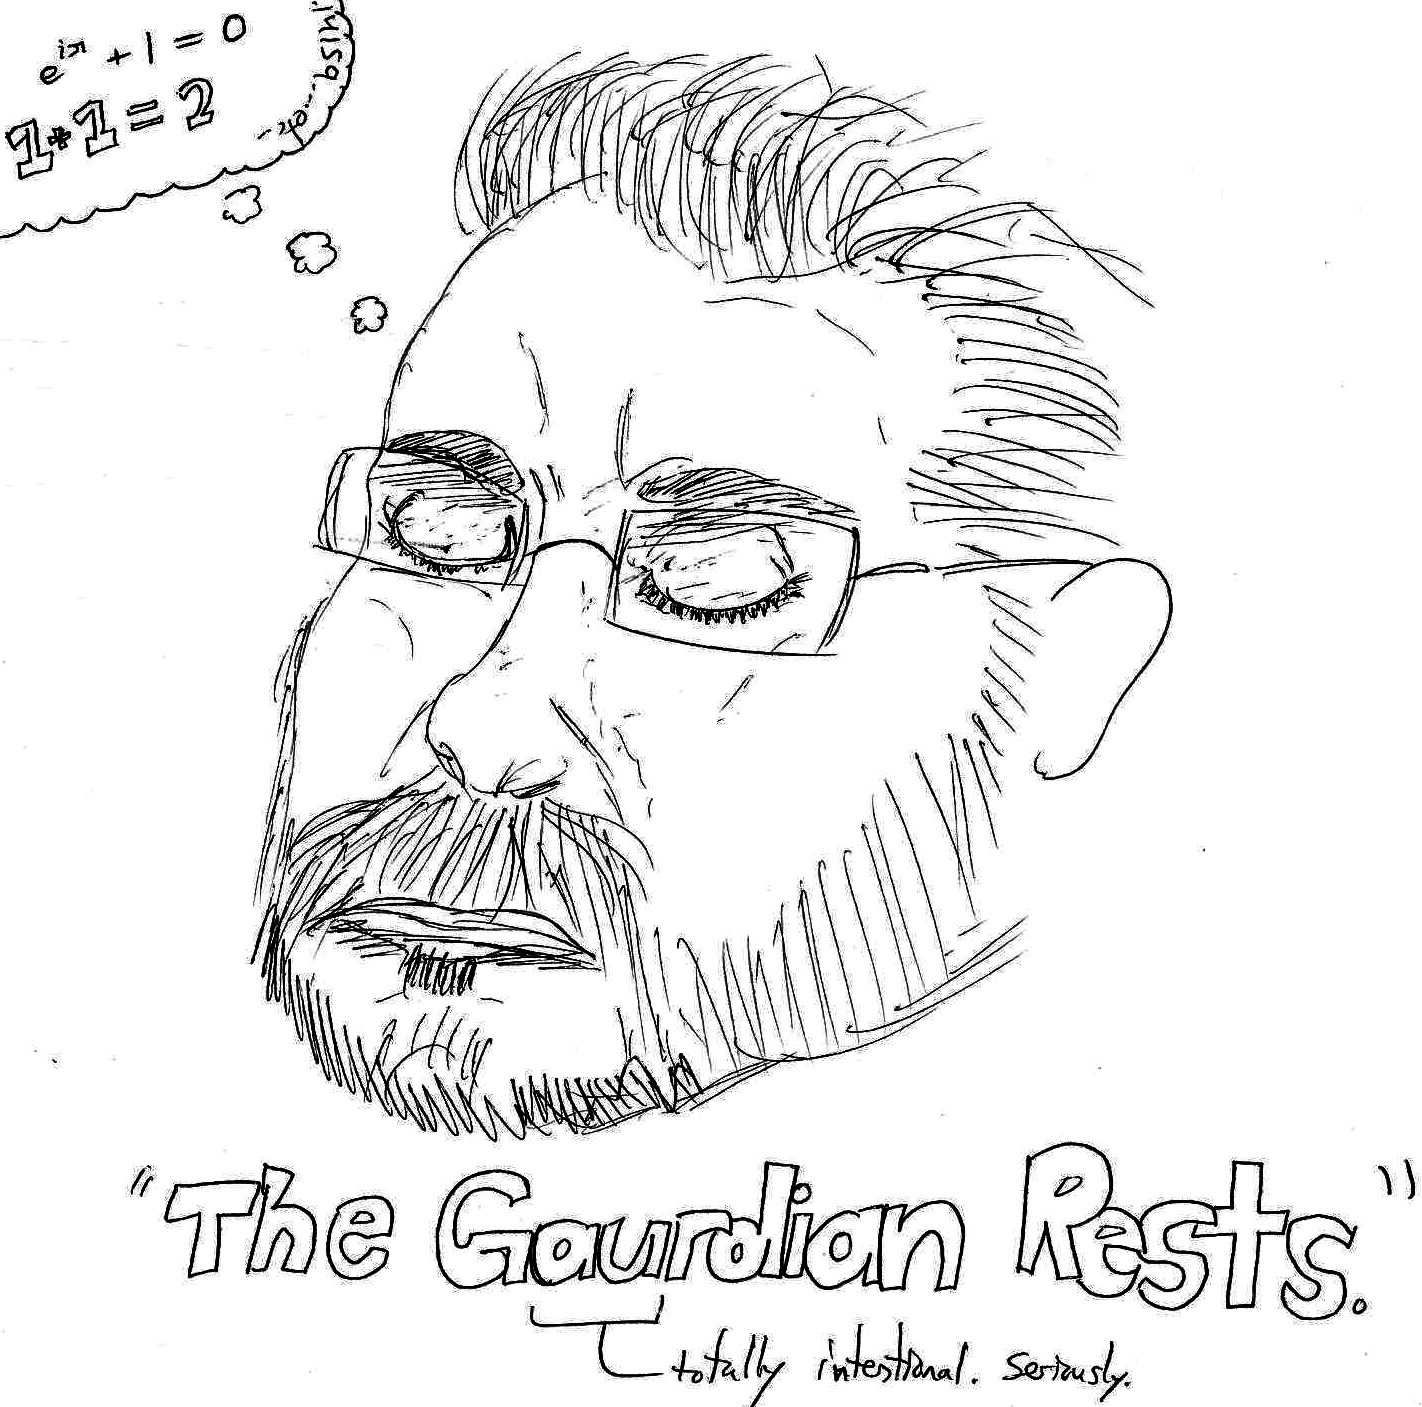 e^iπ + 1 = 0
1*1=2
...etc.
"The Gaurdian Rests."
totally intentional. seriously.